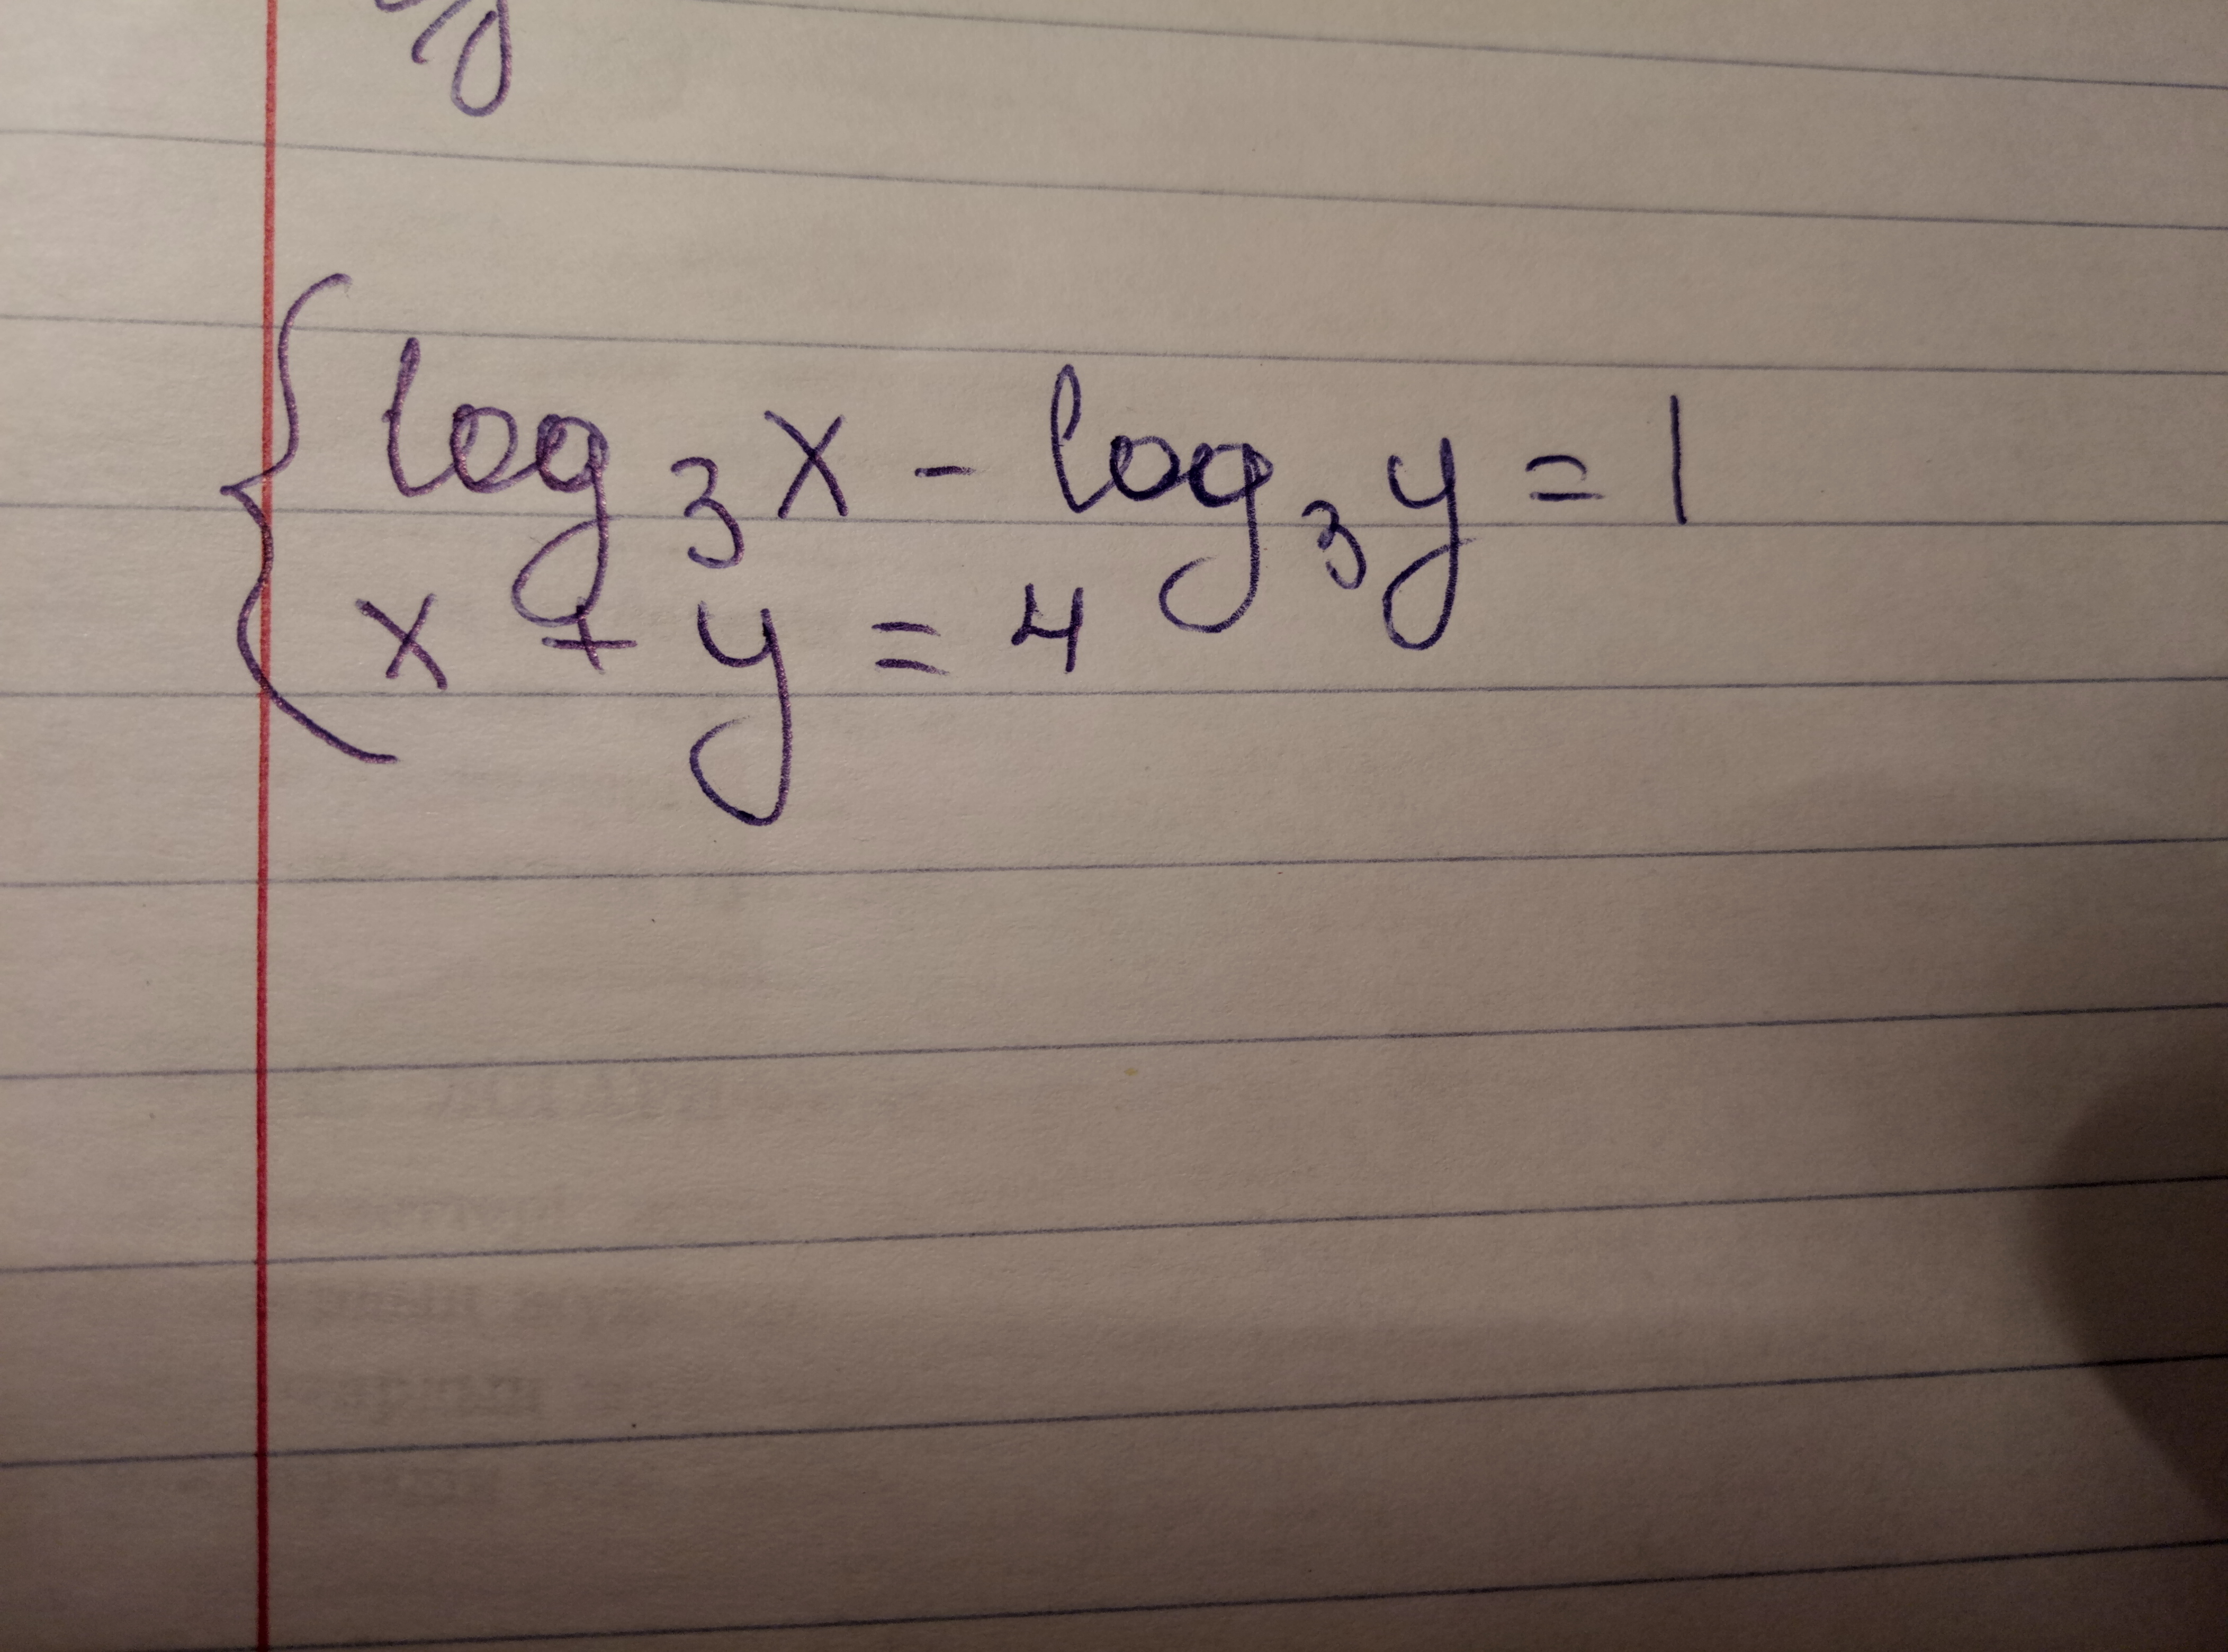 log₃x - log₃y = 1
x + y = 4